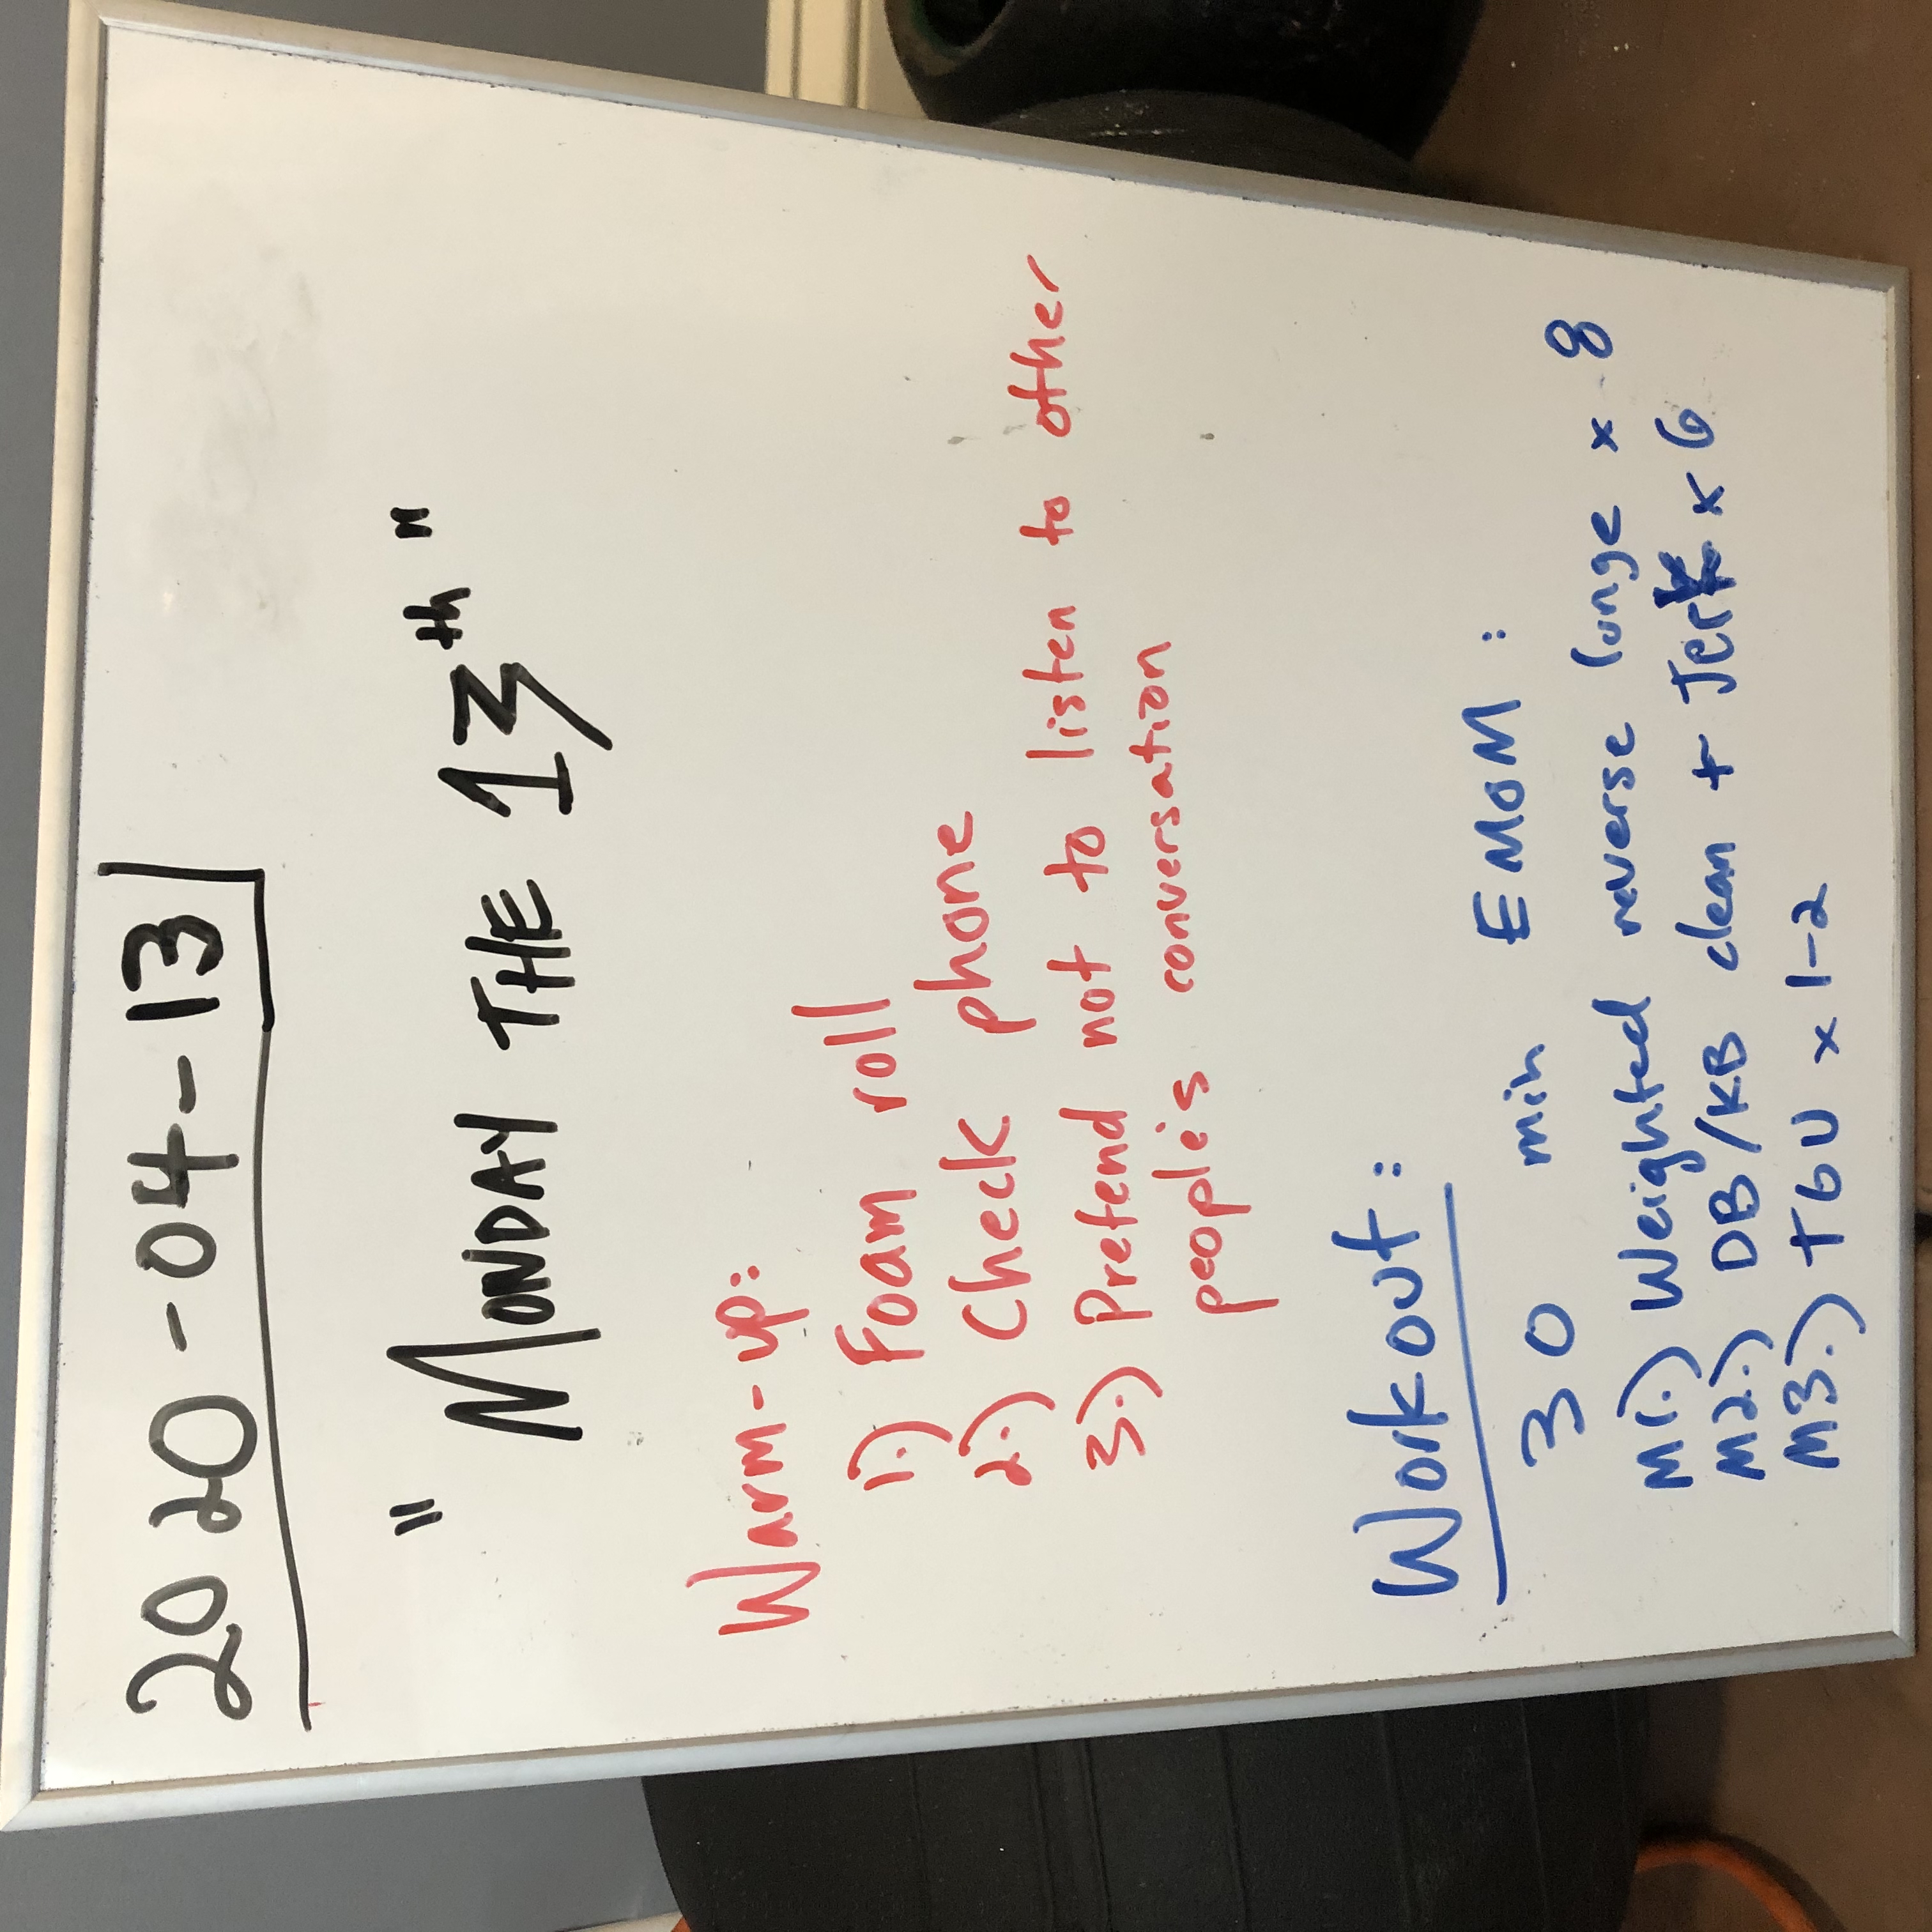 2020-04-13
"Monday the 13th"
Warm-up:
1.) Foam roll
2.) Check phone
3.) Pretend not to listen to other
people's conversation
Workout:
30 min EMOM:
M1.) Weighted reverse lunge x 8
M2.) DB/KB clean + Jerk x 6
M3.) TGU x 1-2